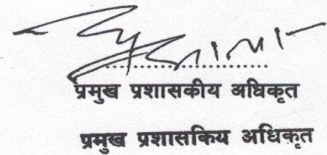 प्रमुख प्रशासकीय अधिकृत
प्रमुख प्रशासकिय अधिकृत